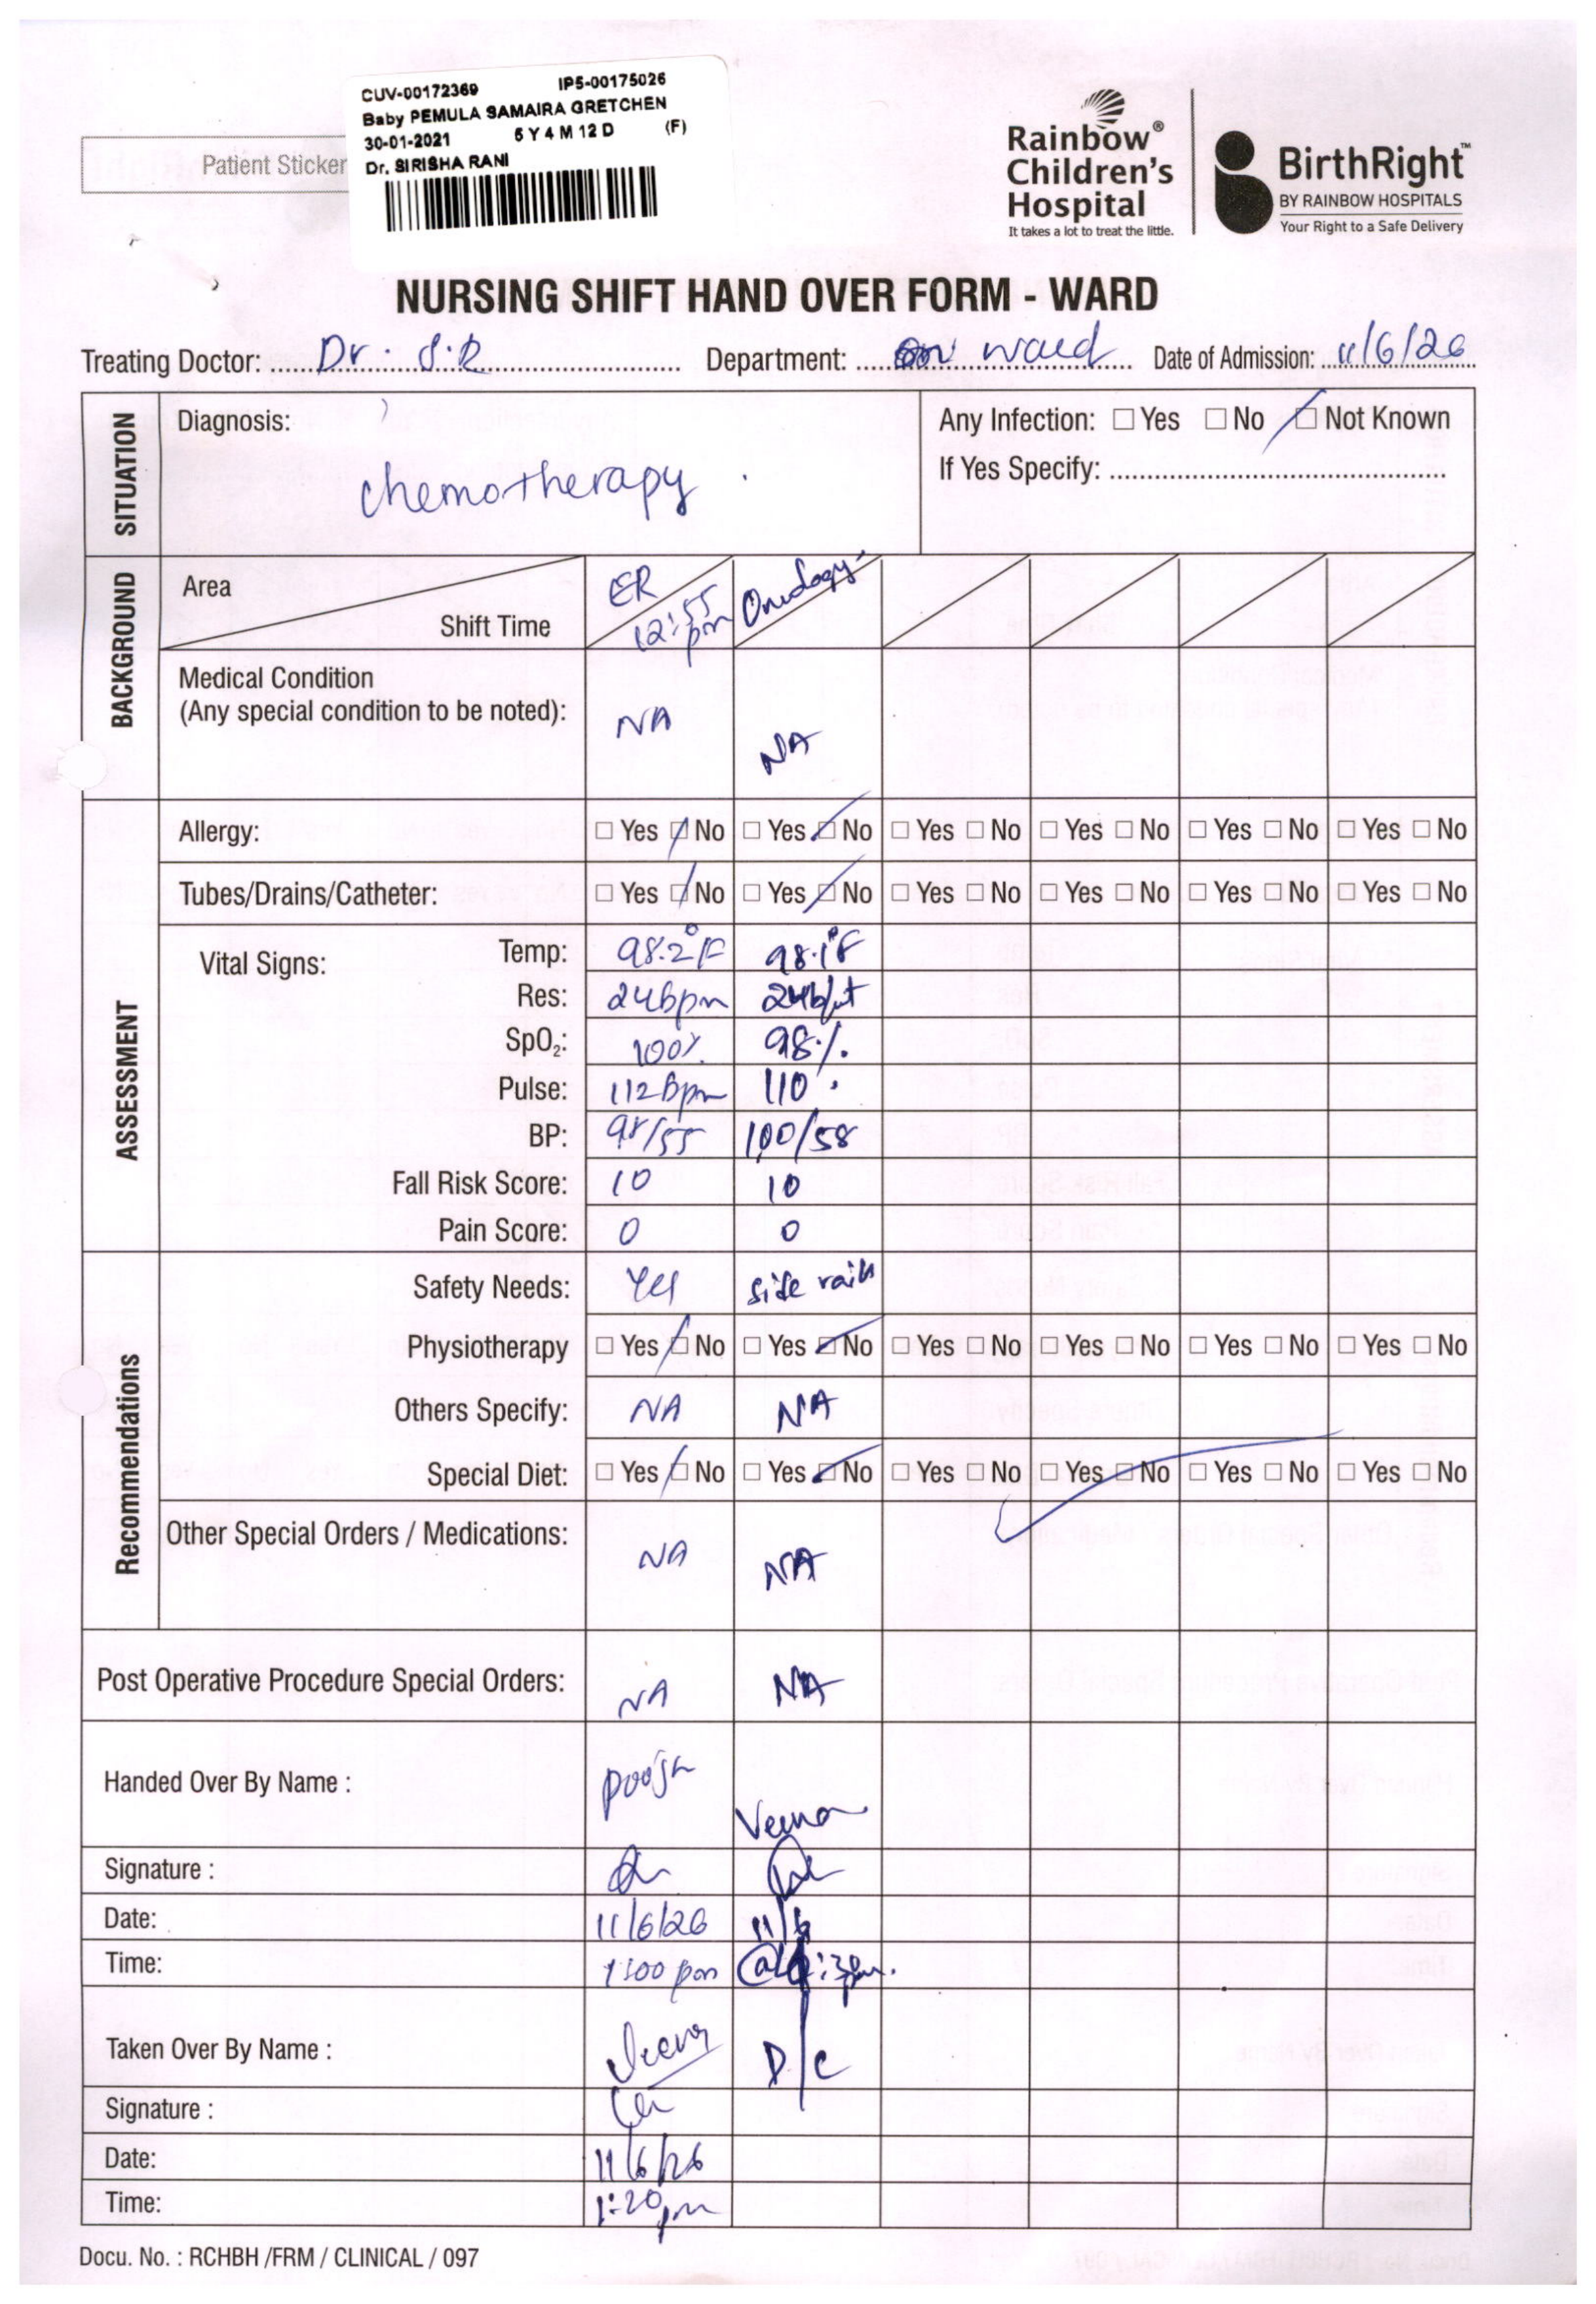 CUV-00172369 IP5-00175026
Baby PEMULA SAMAIRA GRETCHEN
30-01-2021 5 Y 4 M 12 D (F)
Dr. SIRISHA RANI
Patient Sticker
Rainbow®
Children's
Hospital
It takes a lot to treat the little.
BirthRight™
BY RAINBOW HOSPITALS
Your Right to a Safe Delivery
NURSING SHIFT HAND OVER FORM - WARD
Treating Doctor: Dr. S.R Department: ward Date of Admission: 11/6/26
SITUATION
Diagnosis: Any Infection: ☐ Yes ☐ No ☐ Not Known
If Yes Specify:
chemotherapy
BACKGROUND
Area ER Oncology
Shift Time 12:55 pm
Medical Condition
(Any special condition to be noted): NA NA
ASSESSMENT
Allergy: ☐ Yes ☐ No ☐ Yes ☐ No ☐ Yes ☐ No ☐ Yes ☐ No ☐ Yes ☐ No ☐ Yes ☐ No
Tubes/Drains/Catheter: ☐ Yes ☐ No ☐ Yes ☐ No ☐ Yes ☐ No ☐ Yes ☐ No ☐ Yes ☐ No ☐ Yes ☐ No
Vital Signs: Temp: 98.2°F 98.1°F
Res: 24bpm 24b/mt
SpO₂: 100% 98%
Pulse: 112Bpm 110
BP: 98/55 100/58
Fall Risk Score: 10 10
Pain Score: 0 0
Recommendations
Safety Needs: Yes side rails
Physiotherapy ☐ Yes ☐ No ☐ Yes ☐ No ☐ Yes ☐ No ☐ Yes ☐ No ☐ Yes ☐ No ☐ Yes ☐ No
Others Specify: NA NA
Special Diet: ☐ Yes ☐ No ☐ Yes ☐ No ☐ Yes ☐ No ☐ Yes ☐ No ☐ Yes ☐ No ☐ Yes ☐ No
Other Special Orders / Medications: NA NA
Post Operative Procedure Special Orders: NA NA
Handed Over By Name : Veena
Signature :
Date: 11/6/26 11/6
Time: 1:00 pm
Taken Over By Name : Veena D/C
Signature :
Date: 11/6/26
Time: 1:20pm
Docu. No. : RCHBH /FRM / CLINICAL / 097